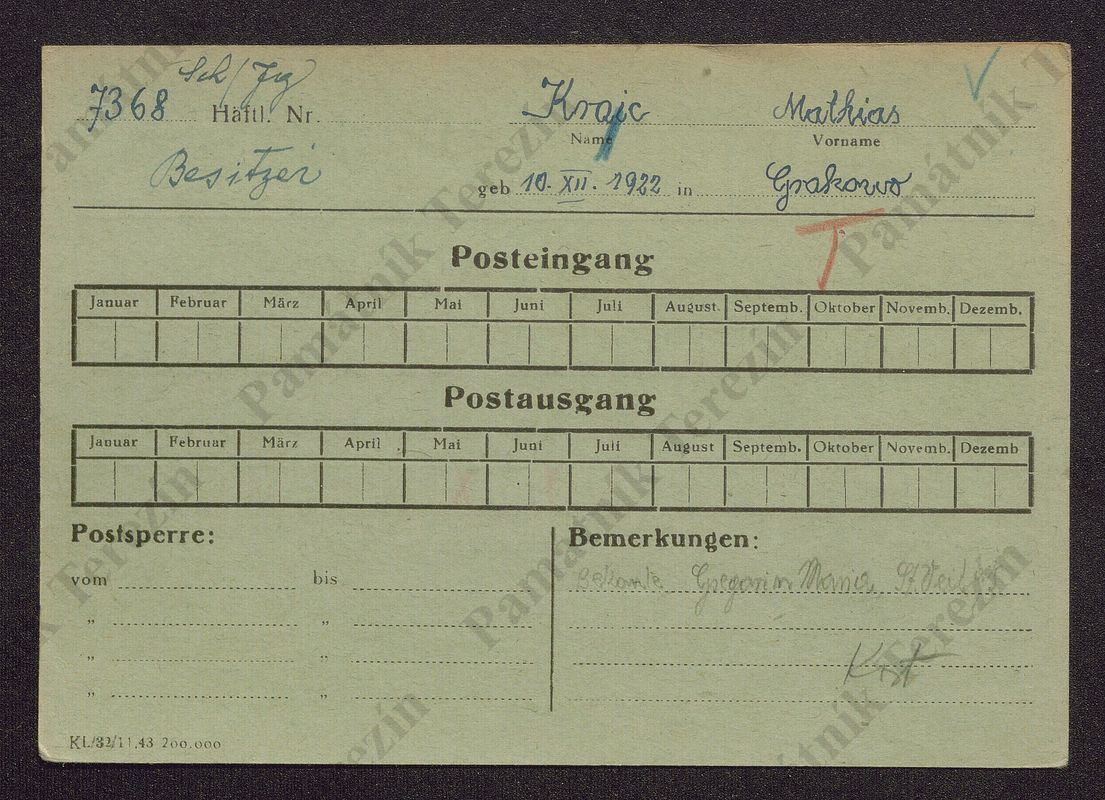 Sch/Jug
7368 Häftl. Nr. Krajc Mathias
Name Vorname
Besitzer geb 10. XII. 1922 in Grakowo
T
Posteingang
Januar Februar März April Mai Juni Juli August Septemb. Oktober Novemb. Dezemb.
Postausgang
Januar Februar März April Mai Juni Juli August Septemb. Oktober Novemb. Dezemb
Postsperre: Bemerkungen:
vom bis
Bekante Maria St. Veit
" "
" "
" "
KL/32/11.43 200.000
Památník Terezín